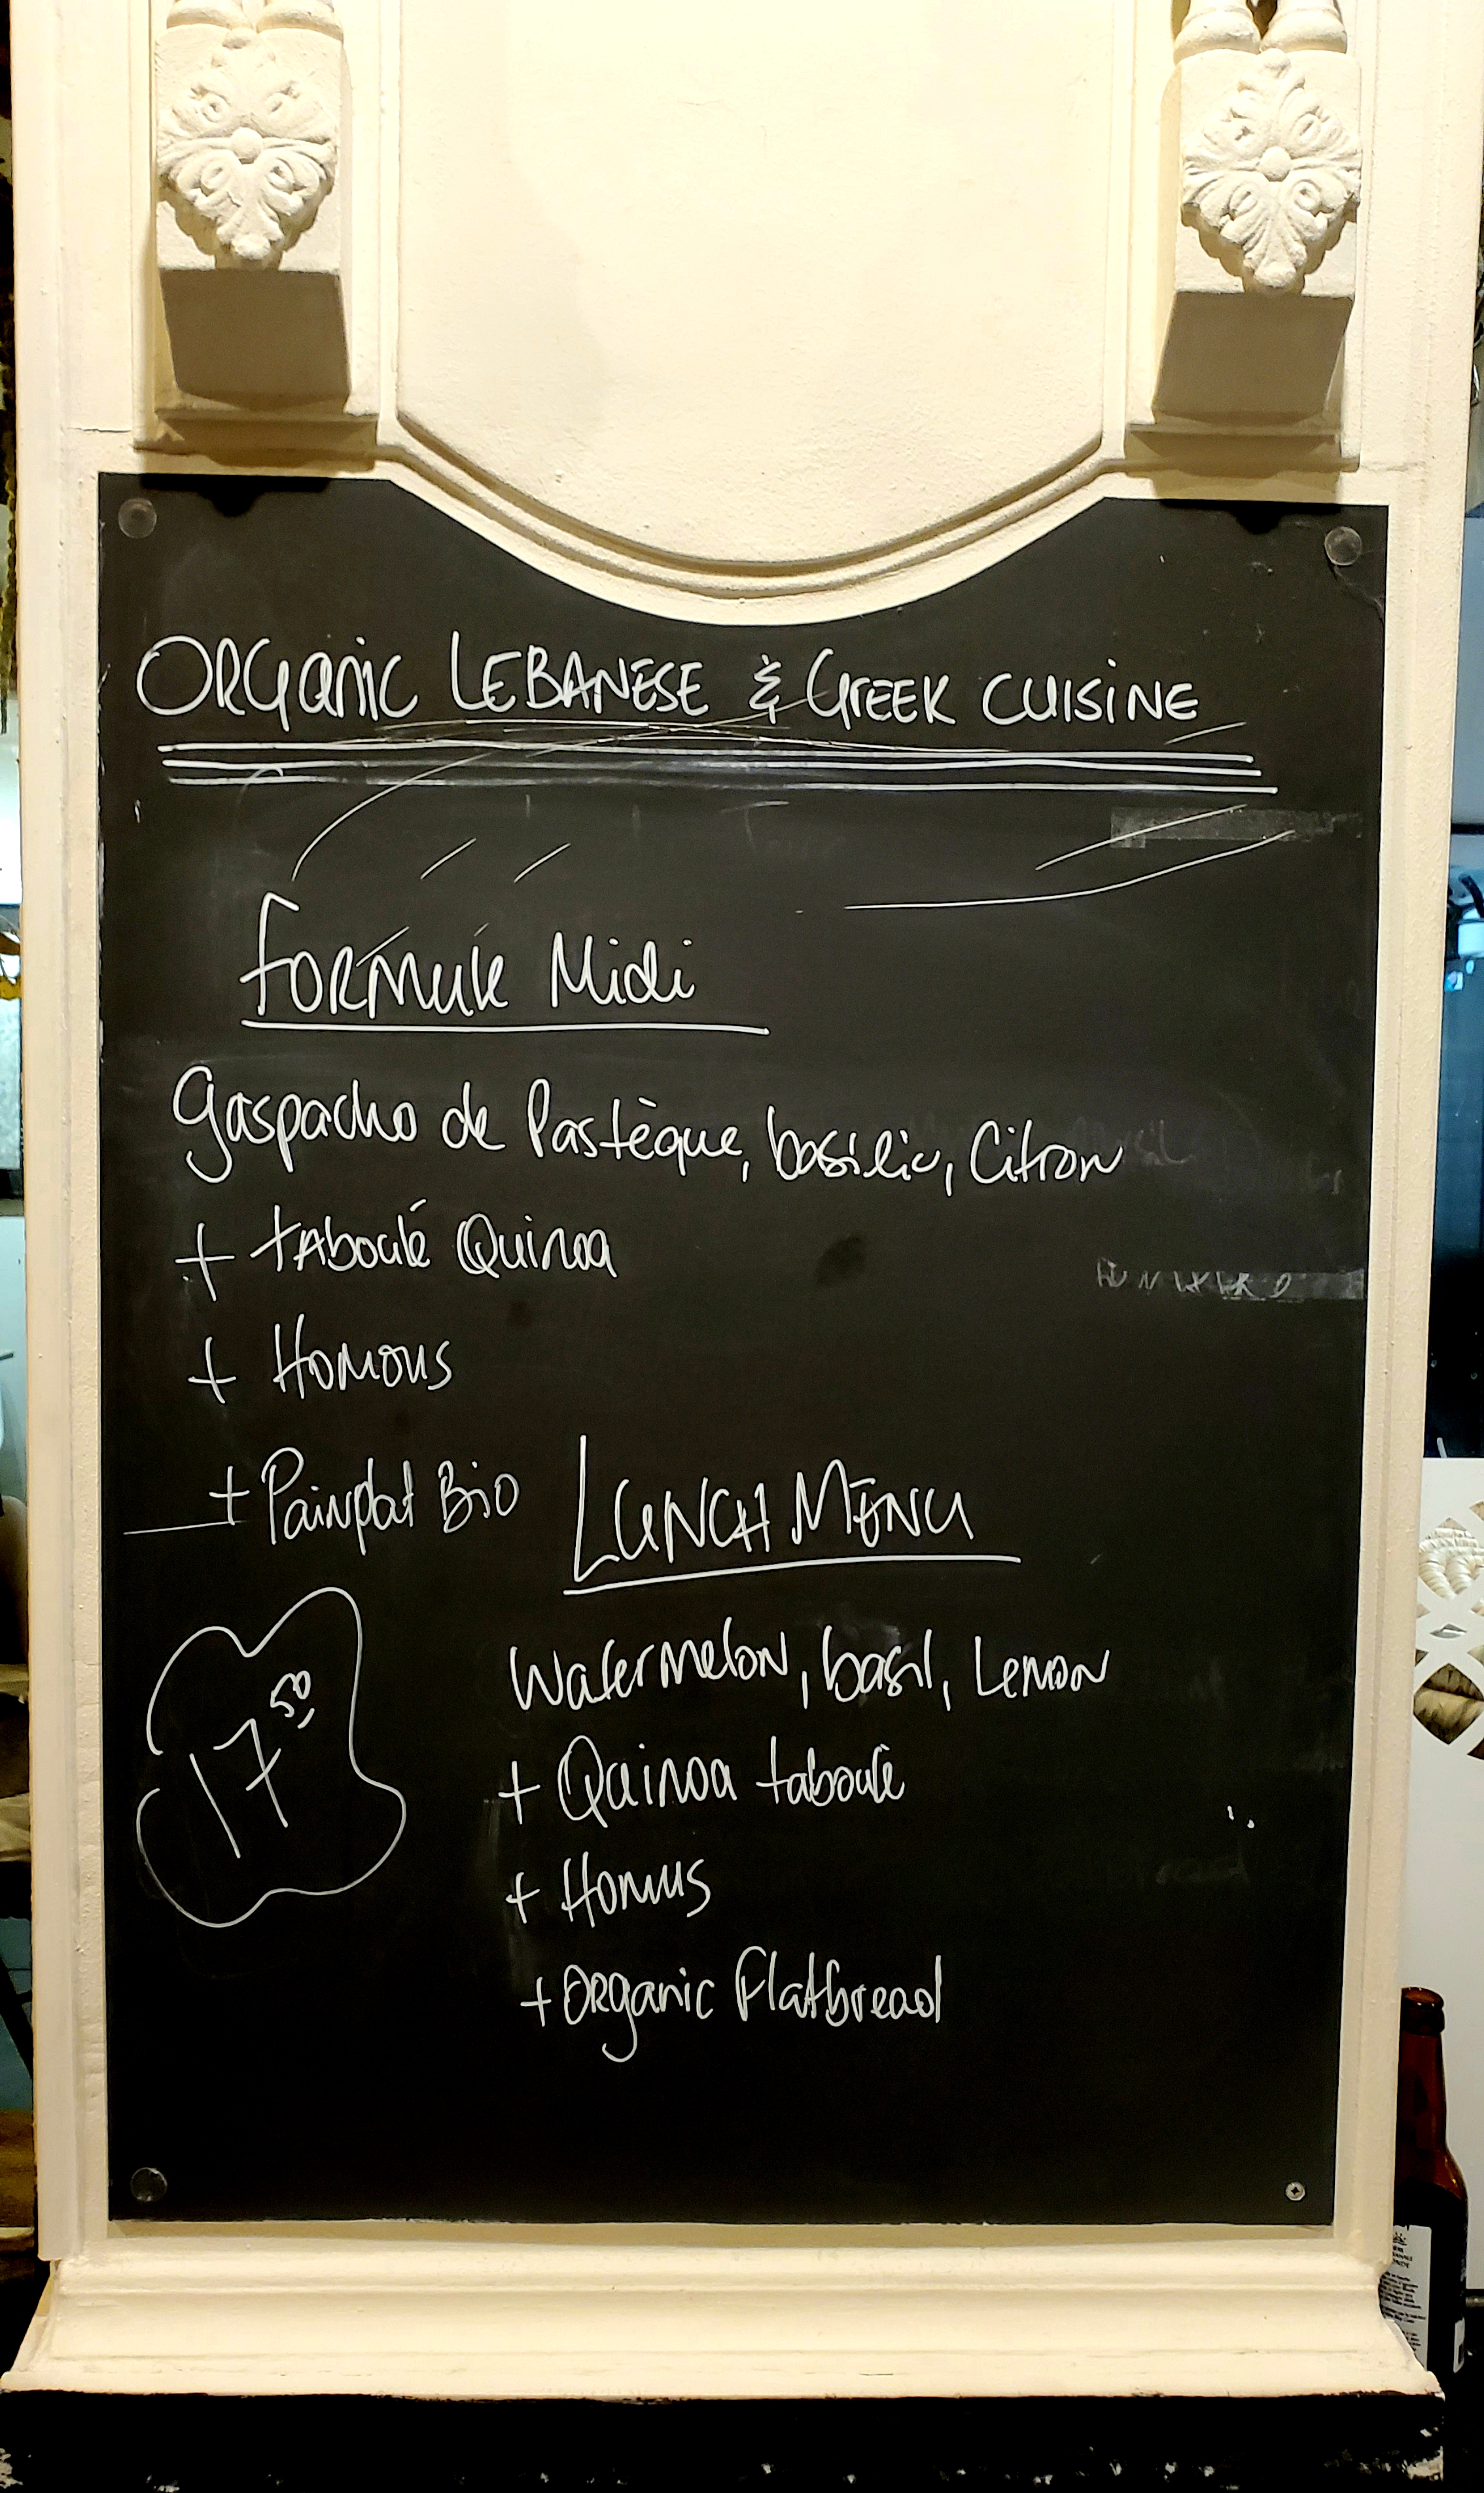 ORGANIC LEBANESE & GREEK CUISINE
FORMULE Midi
Gaspacho de Pastèque, basilic, Citron
+ TABoulé Quinoa
+ HOMOUS
+ Painplat Bio
LUNCH MENU
Watermelon, basil, Lemon
17 50
+ Quinoa taboulé
+ Homus
+ ORganic Flatbread